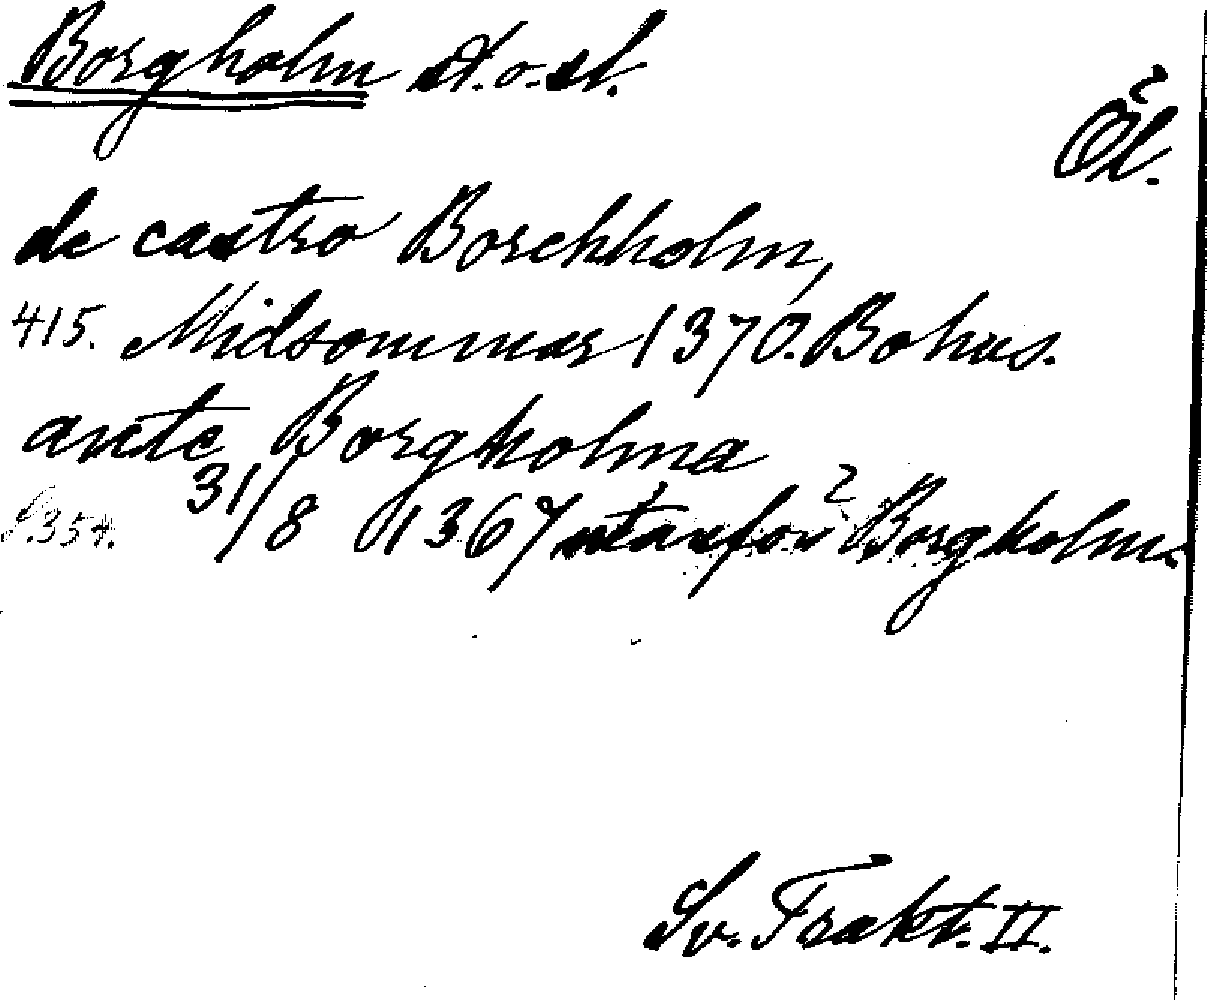 Borgholm st. o. sl.
Öl.
de castro Borchholm,
415. Midsommar 1370. Bohus.
ante Borgholma
S. 354. 31/8 1367 utanför Borgholm.
Sv. Trakt. II.